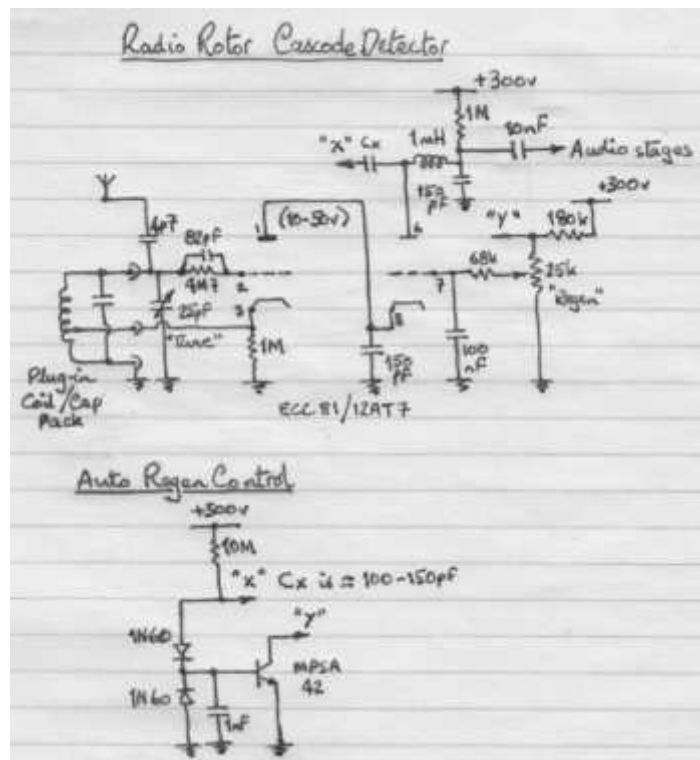 Radio Rotor Cascode Detector
+300v
1M
10nF
Audio stages
"X" Cx
1mH
150
pf
+300v
"Y"
180k
4p7
82pf
4M7
(10-50v)
1
6
2
7
68k
25k
"Regen"
25pf
"Tune"
3
1M
8
150
pf
100
nF
Plug-in
Coil/Cap
Pack
ECC81/12AT7
Auto Regen Control
+300v
10M
"X" Cx is ≈ 100-150pf
"Y"
1N60
MPSA
42
1N60
1nF